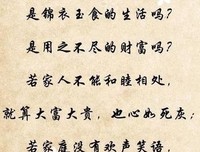 是锦衣玉食的生活吗?
是用之不尽的财富吗?
若家人不能和睦相处,
就算大富大贵,也心如死灰;
若家庭没有欢声笑语,